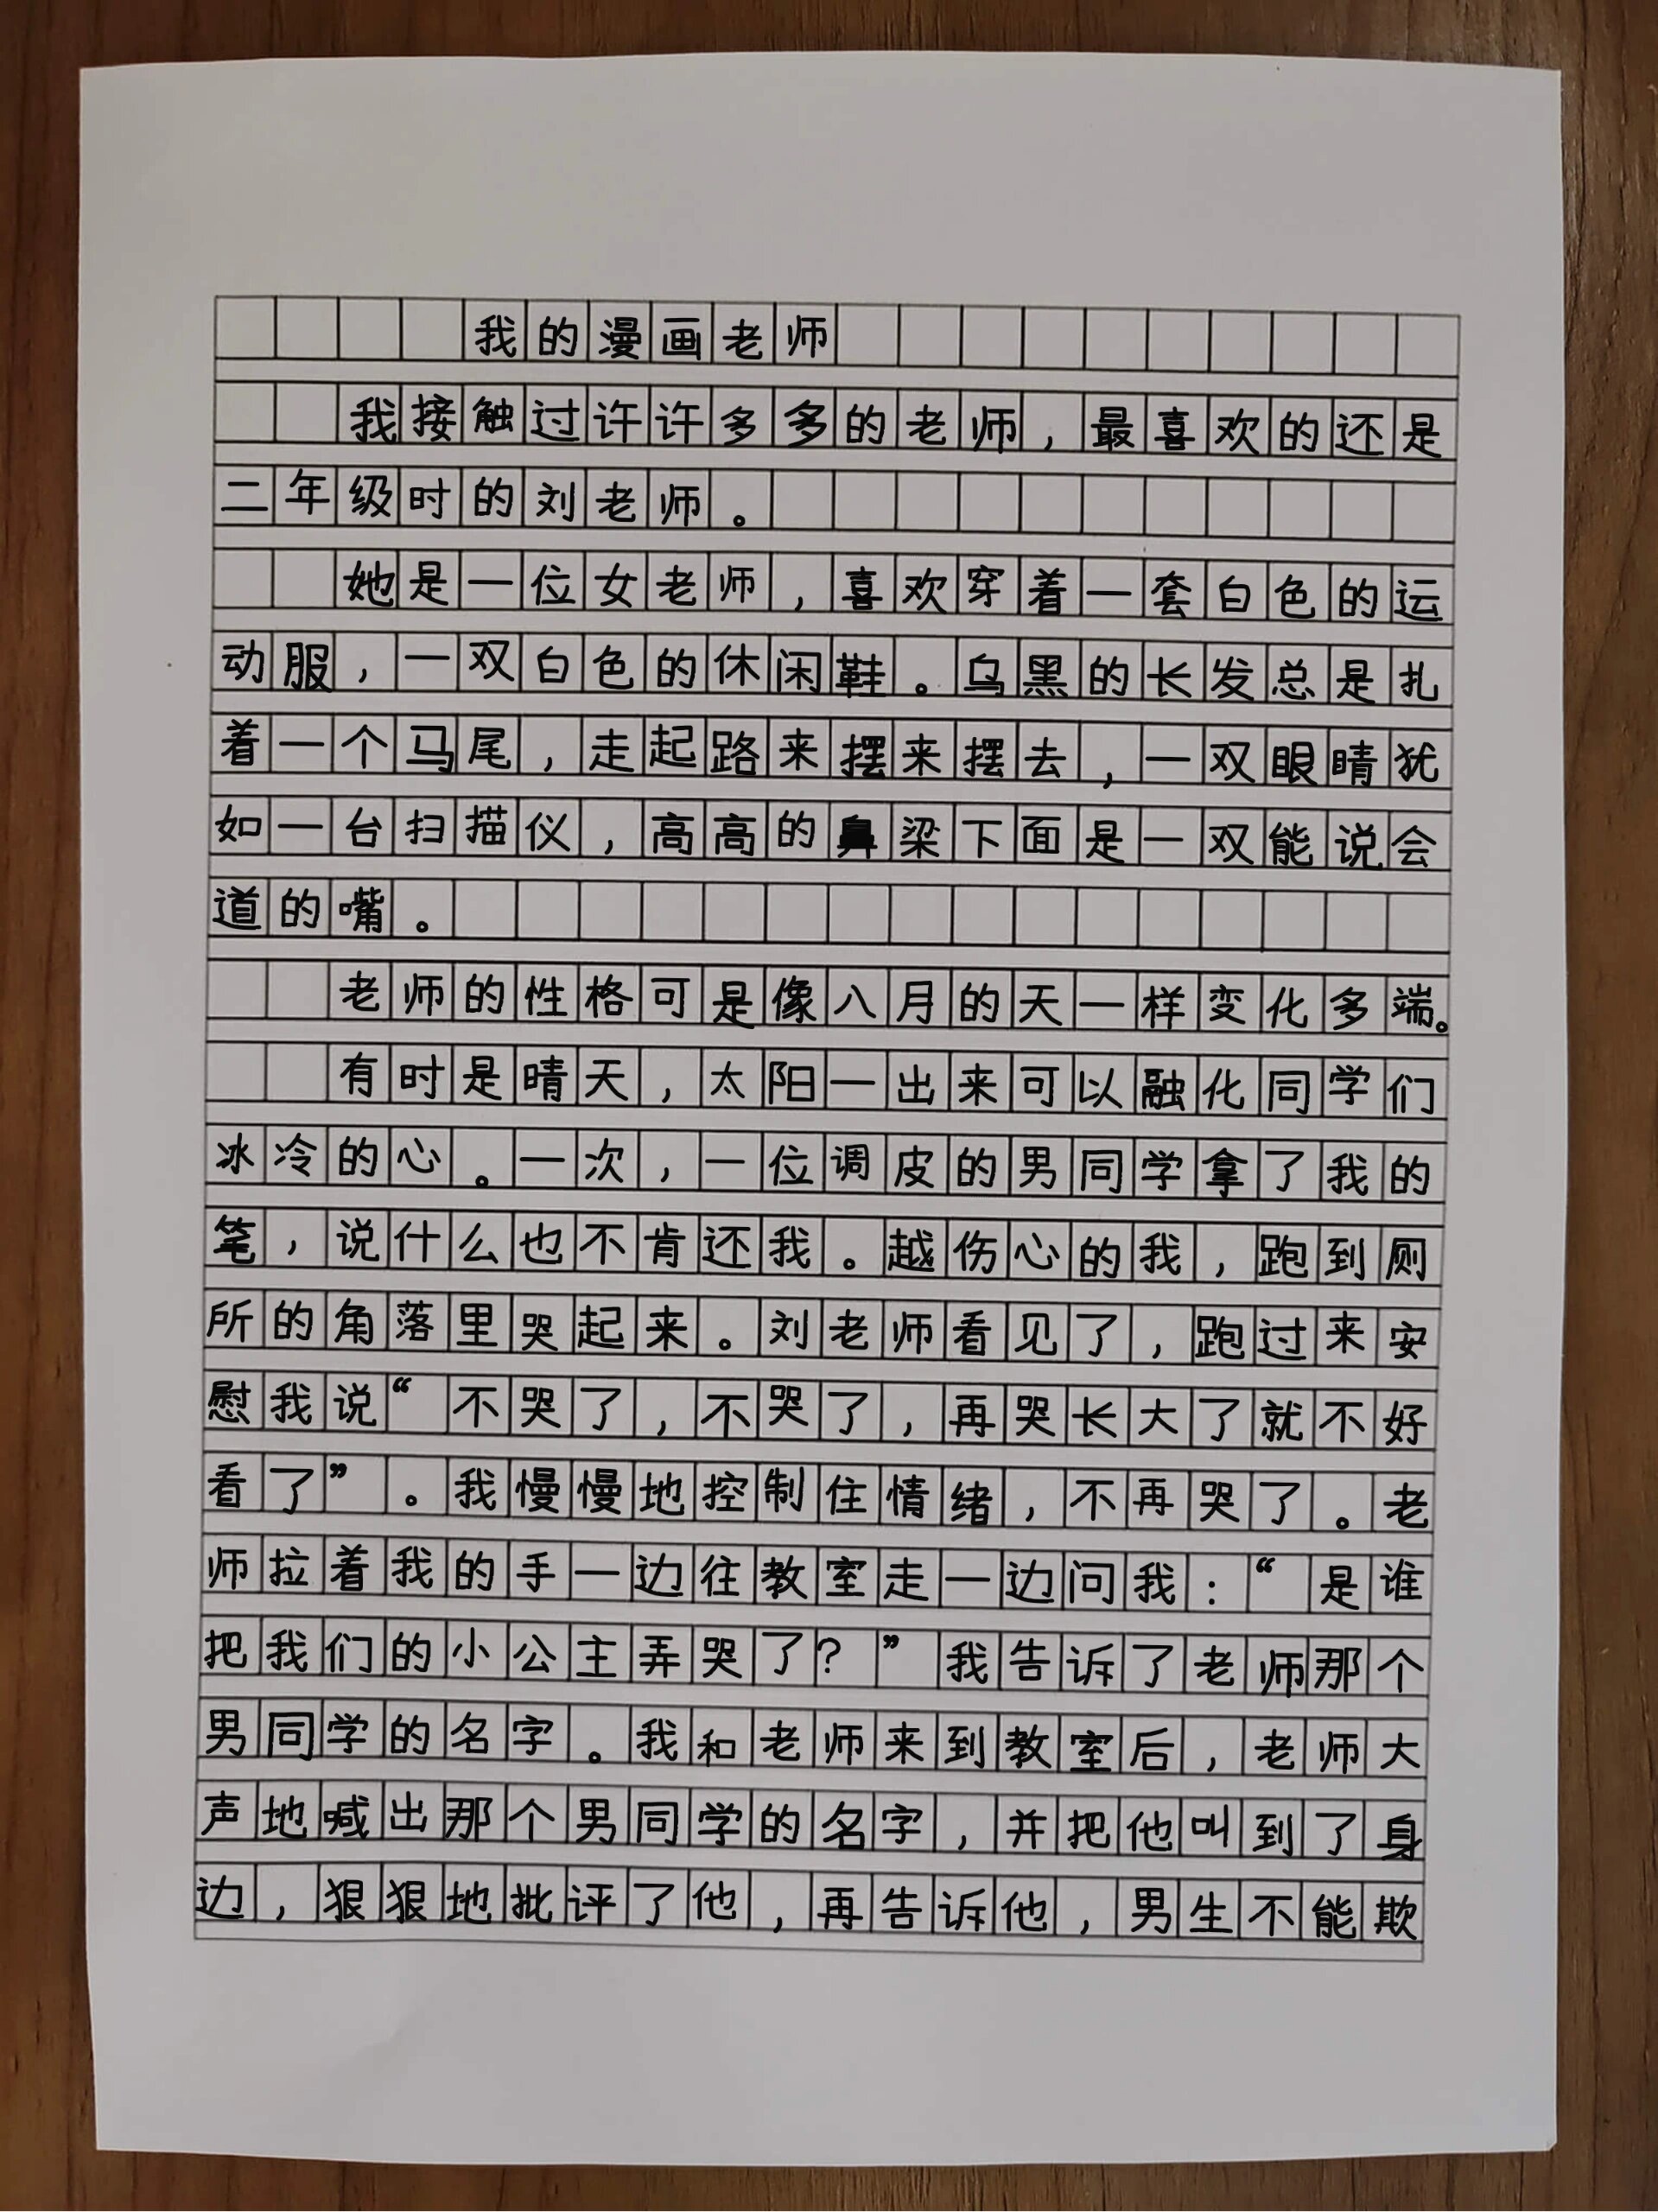 我的漫画老师
我接触过许许多多的老师，最喜欢的还是
二年级时的刘老师。
她是一位女老师，喜欢穿着一套白色的运
动服，一双白色的休闲鞋。乌黑的长发总是扎
着一个马尾，走起路来摆来摆去，一双眼睛犹
如一台扫描仪，高高的鼻梁下面是一双能说会
道的嘴。
老师的性格可是像八月的天一样变化多端。
有时是晴天，太阳一出来可以融化同学们
冰冷的心。一次，一位调皮的男同学拿了我的
笔，说什么也不肯还我。越伤心的我，跑到厕
所的角落里哭起来。刘老师看见了，跑过来安
慰我说“不哭了，不哭了，再哭长大了就不好
看了”。我慢慢地控制住情绪，不再哭了。老
师拉着我的手一边往教室走一边问我：“是谁
把我们的小公主弄哭了？”我告诉了老师那个
男同学的名字。我和老师来到教室后，老师大
声地喊出那个男同学的名字，并把他叫到了身
边，狠狠地批评了他，再告诉他，男生不能欺